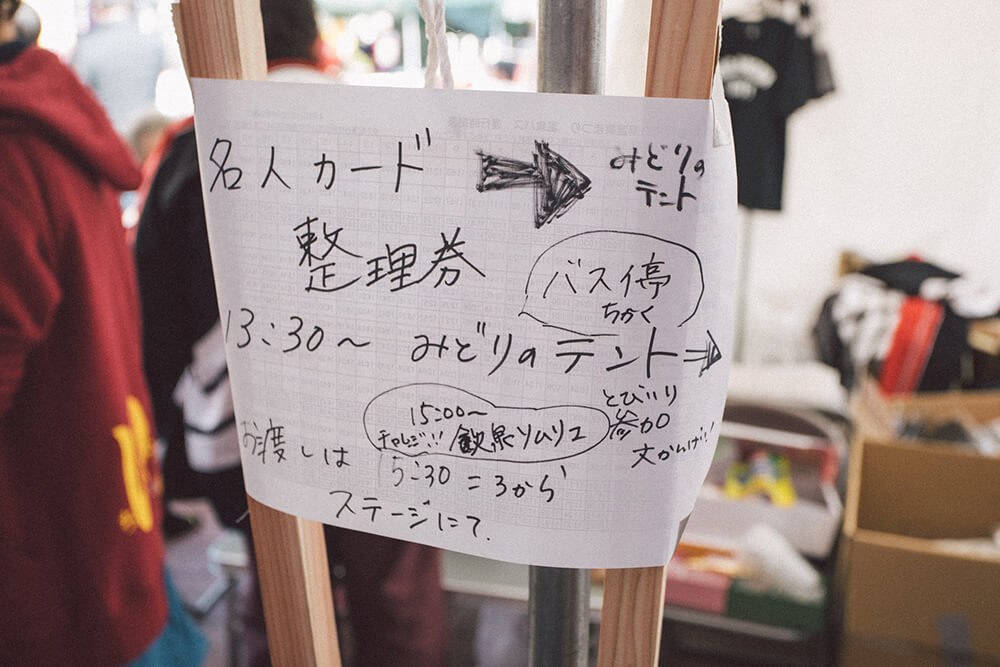 名人カード みどりの
テント
整理券
バス停
ちかく
13:30～ みどりのテント
15:00～
チャレンジ!! 飲泉ソムリエ
とびいり
参加
大かんげい!!
お渡しは 15:30=3から
ステージにて.